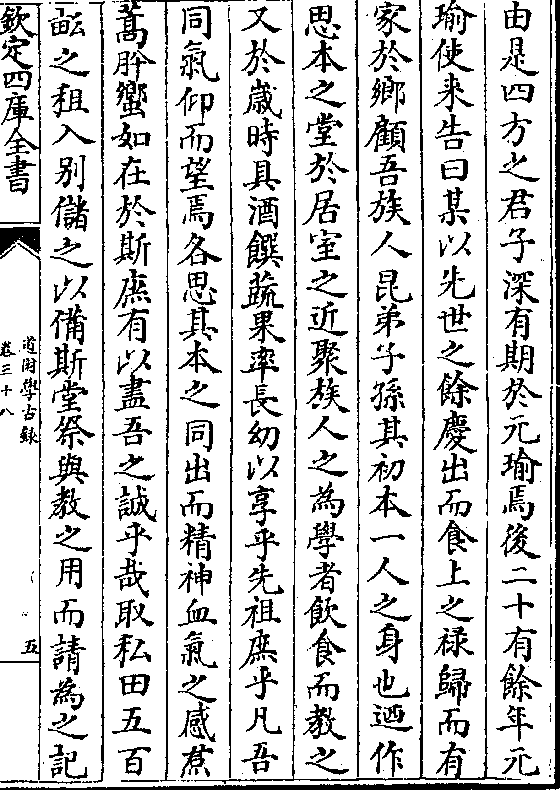 由是四方之君子深有期於元瑜焉後二十有餘年元
瑜使来告曰某以先世之餘慶出而食上之禄歸而有
家於鄉顧吾族人昆弟子孫其初本一人之身也迺作
思本之堂於居室之近聚族人之為學者飲食而教之
又於嵗時具酒饌蔬果率長幼以享乎先祖庶乎凡吾
同氣仰而望焉各思其本之同出而精神血氣之感焄
蒿肸蠁如在於斯庶有以盡吾之誠乎哉取私田五百
畝之租入别儲之以備斯堂祭與教之用而請為之記
欽定四庫全書
道園學古録
卷三十八
五